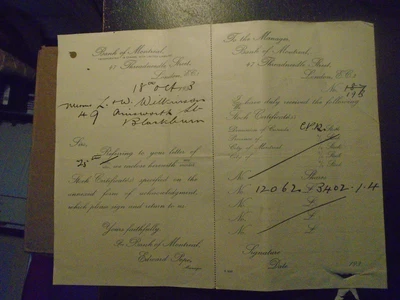 Bank of Montreal,
47 Threadneedle Street,
London, E.C.
18th Oct
49 Ainsworth St
Blackburn
Sir,
Referring to your letter of
we enclose herewith
Stock Certificate specified on the
annexed form of acknowledgment
which please sign and return to us.
Yours faithfully,
Bank of Montreal,
Edward Pope,
Manager
To the Manager,
Bank of Montreal,
47 Threadneedle Street,
London, E.C.
No.
I have duly received the following
Stock Certificate:
Dominion of Canada Stock
Province of
City of Montreal Stock
City of Stock
Stock
No. Shares
No 12062 £3402.1.4
No £
No £
No £
Signature
Date 193